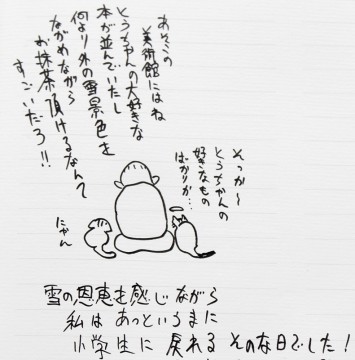 あそこの
美術館にはね
とうちゃんの大好きな
本が並んでいたし
何より外の雪景色を
ながめながら
お抹茶頂けるなんて
すごいだろ!!
そっか〜
とうちゃんの
好きなもの
ばかりか…
にゃん
雪の恩恵を感じながら
私は あっというまに
小学生に 戻れる そのな日でした!